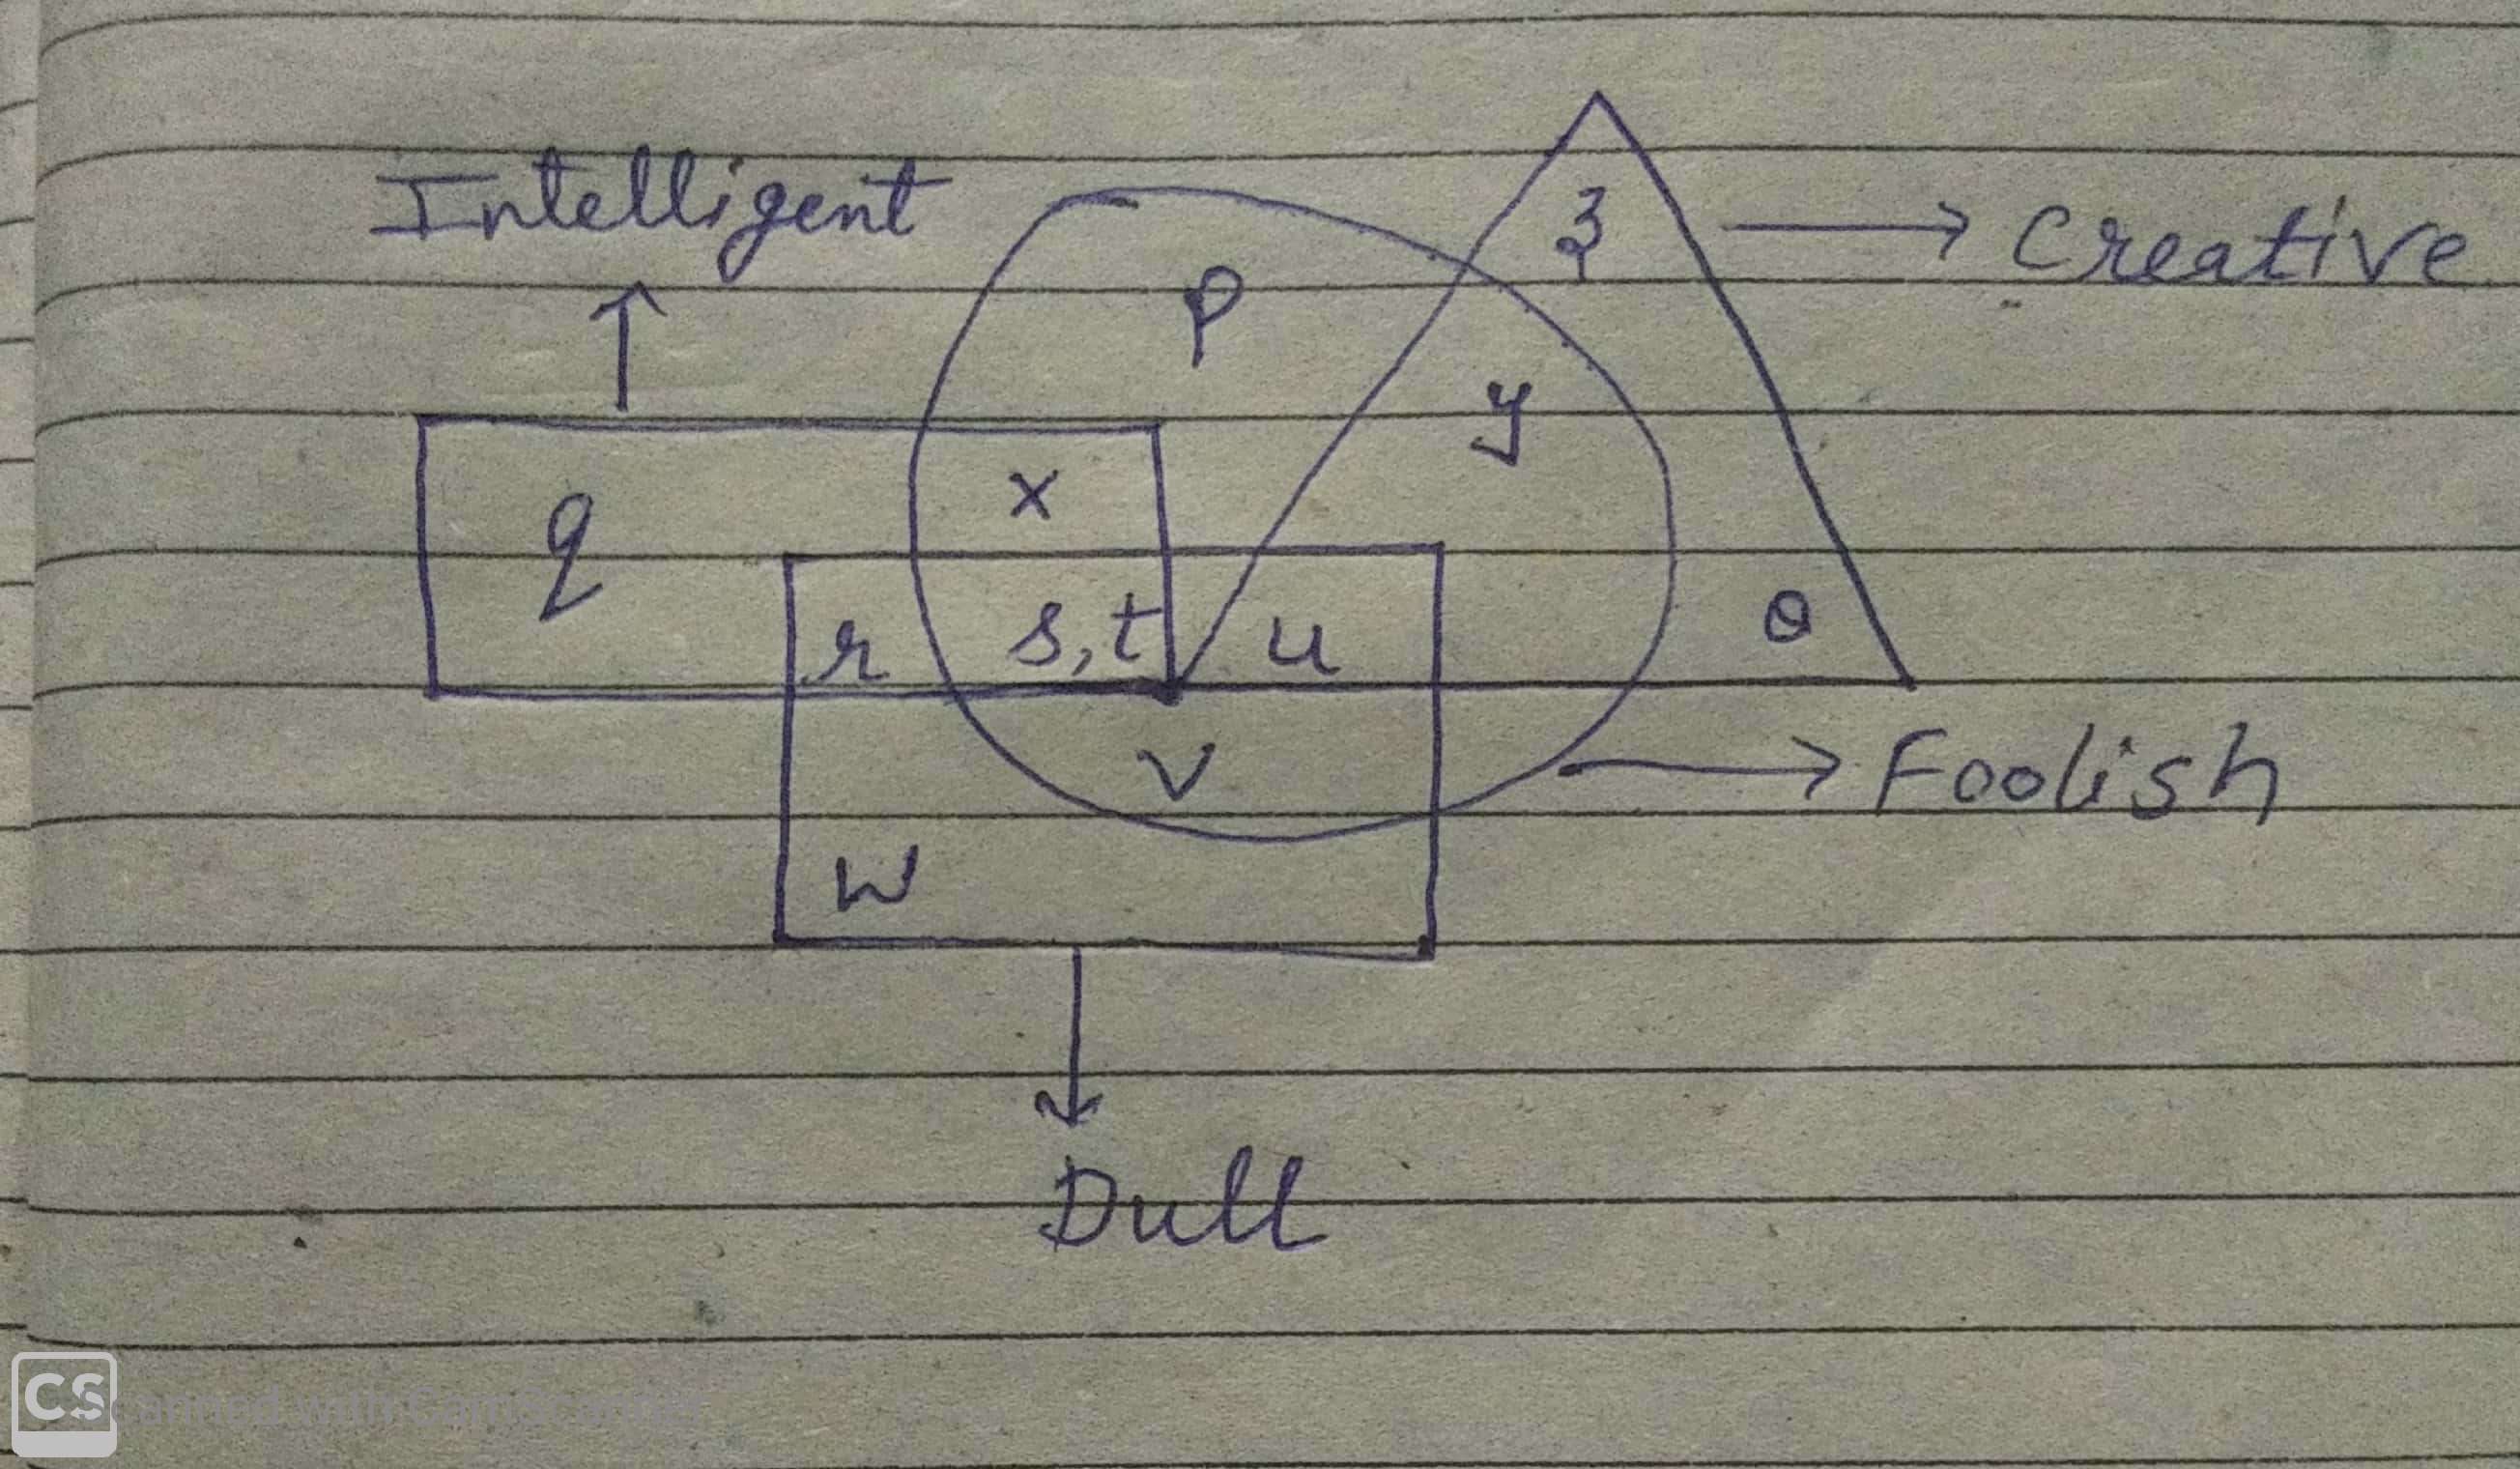 Intelligent
Creative
z
p
y
x
q
s, t
r
u
θ
v
Foolish
w
Dull
CS
Scanned with CamScanner